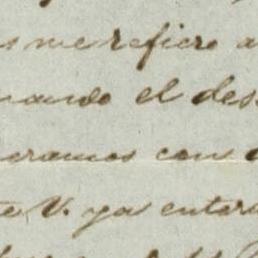 me refiero a
mando el des
eramos con
te V. ya entera